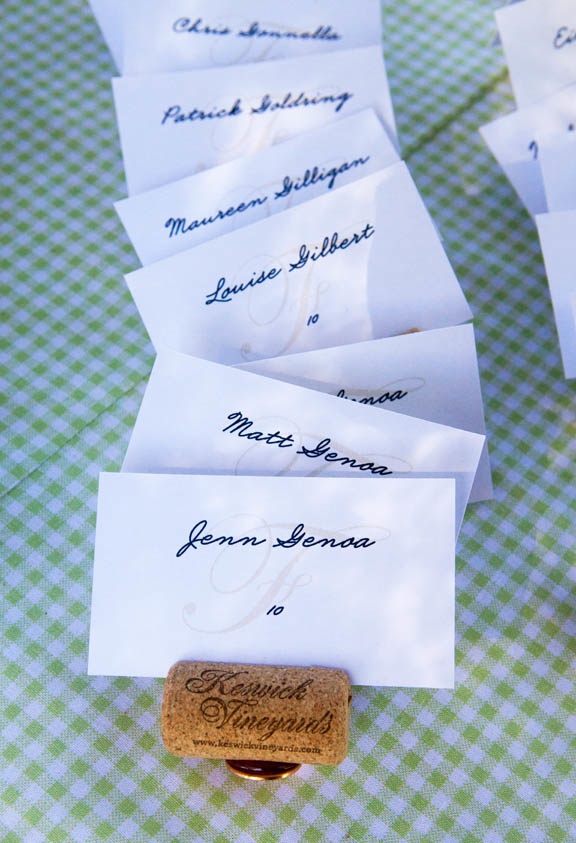 Chris Gonnella
Patrick Goldring
Maureen Gilligan
Louise Gilbert
10
Matt Genoa
Jenn Genoa
10
Keswick
Vineyards
www.keswickvineyards.com